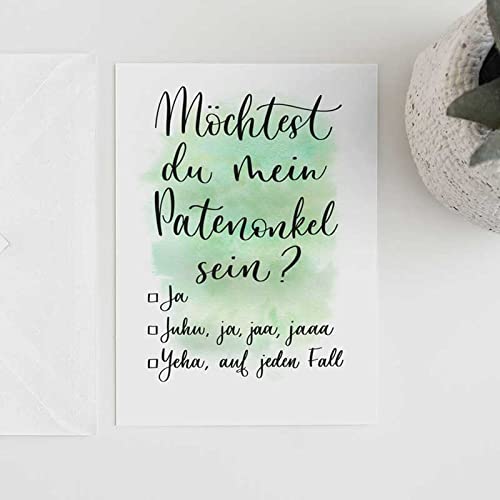 Möchtest
du mein
Patenonkel
sein?
Ja
Juhu, ja, jaa, jaaa
Yeha, auf jeden Fall